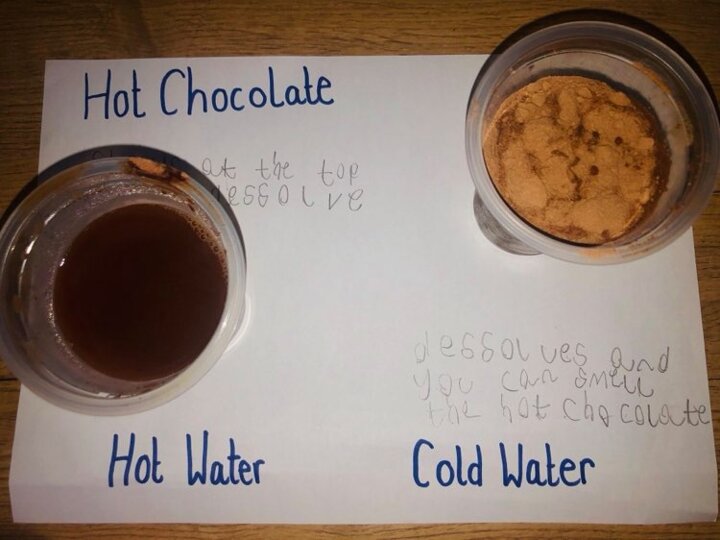 Hot Chocolate
at the top
dessolves and
you can smell
the hot chocolate
Hot Water
Cold Water